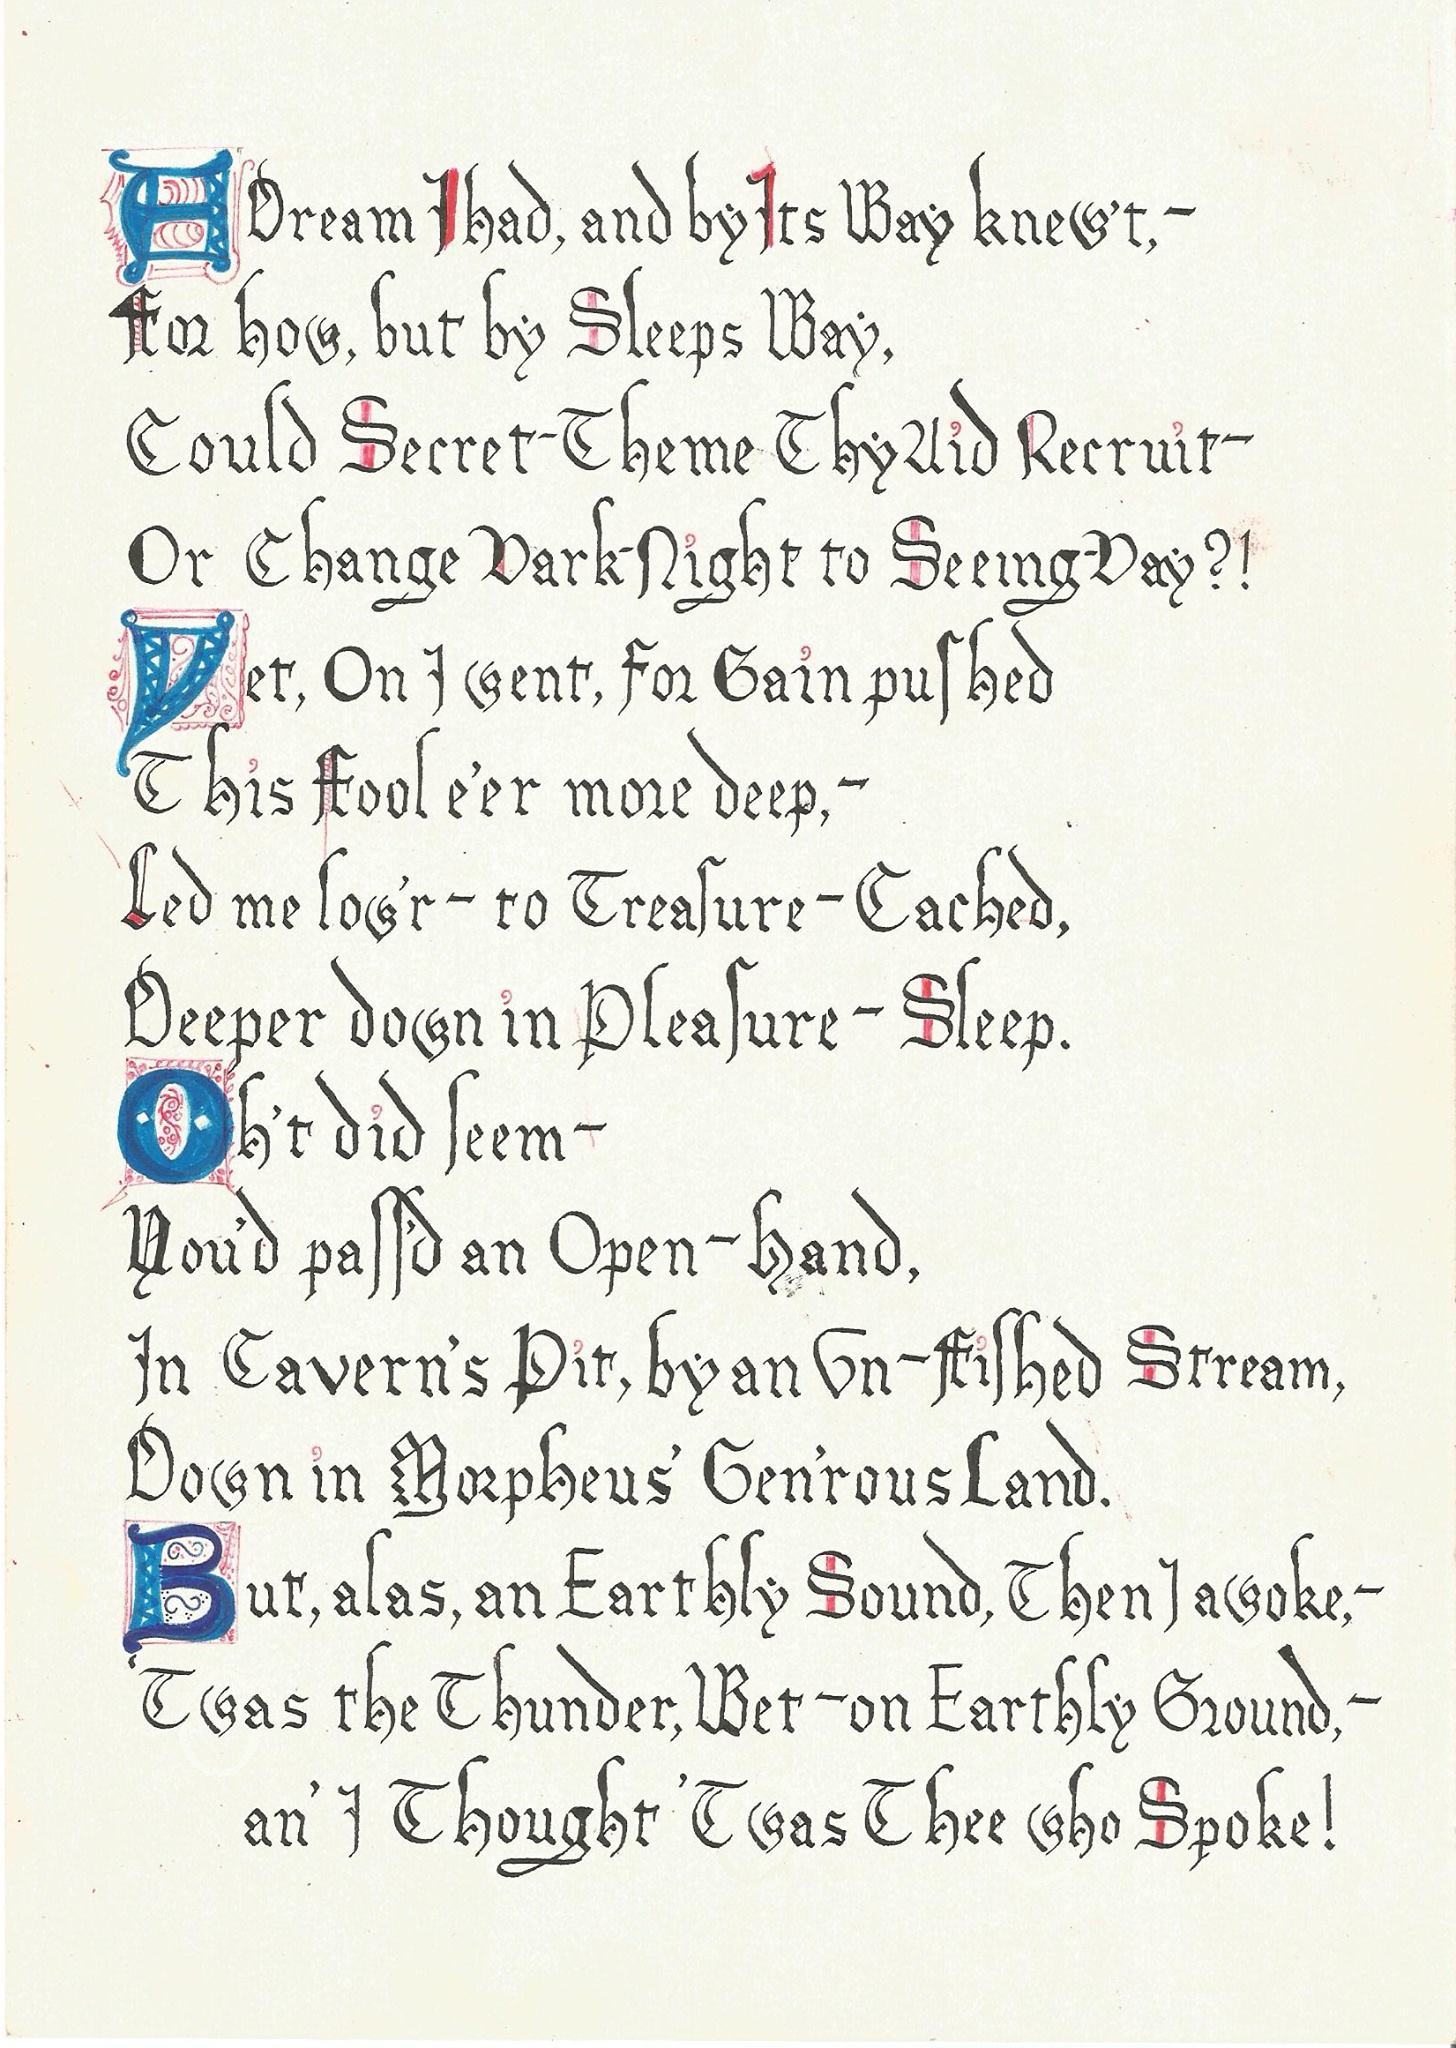 A Dream I had, and by Its Way knew't,-
For how, but by Sleeps Way,
Could Secret-Theme Thy Aid Recruit-
Or Change Dark-Night to Seeing-Day?!
Yet, On I went, For Gain puſhed
This Fool e'er more deep,-
Led me low'r- to Treaſure-Cached,
Deeper down in Pleaſure- Sleep.
Oh't did ſeem-
You'd paſſ'd an Open-Hand,
In Cavern's Pit, by an Un-Fiſhed Stream,
Down in Morpheus' Gen'rous Land.
But, alas, an Earthly Sound, Then I awoke,-
'Twas the Thunder, Wet-on Earthly Ground,-
an' I Thought 'Twas Thee who Spoke!